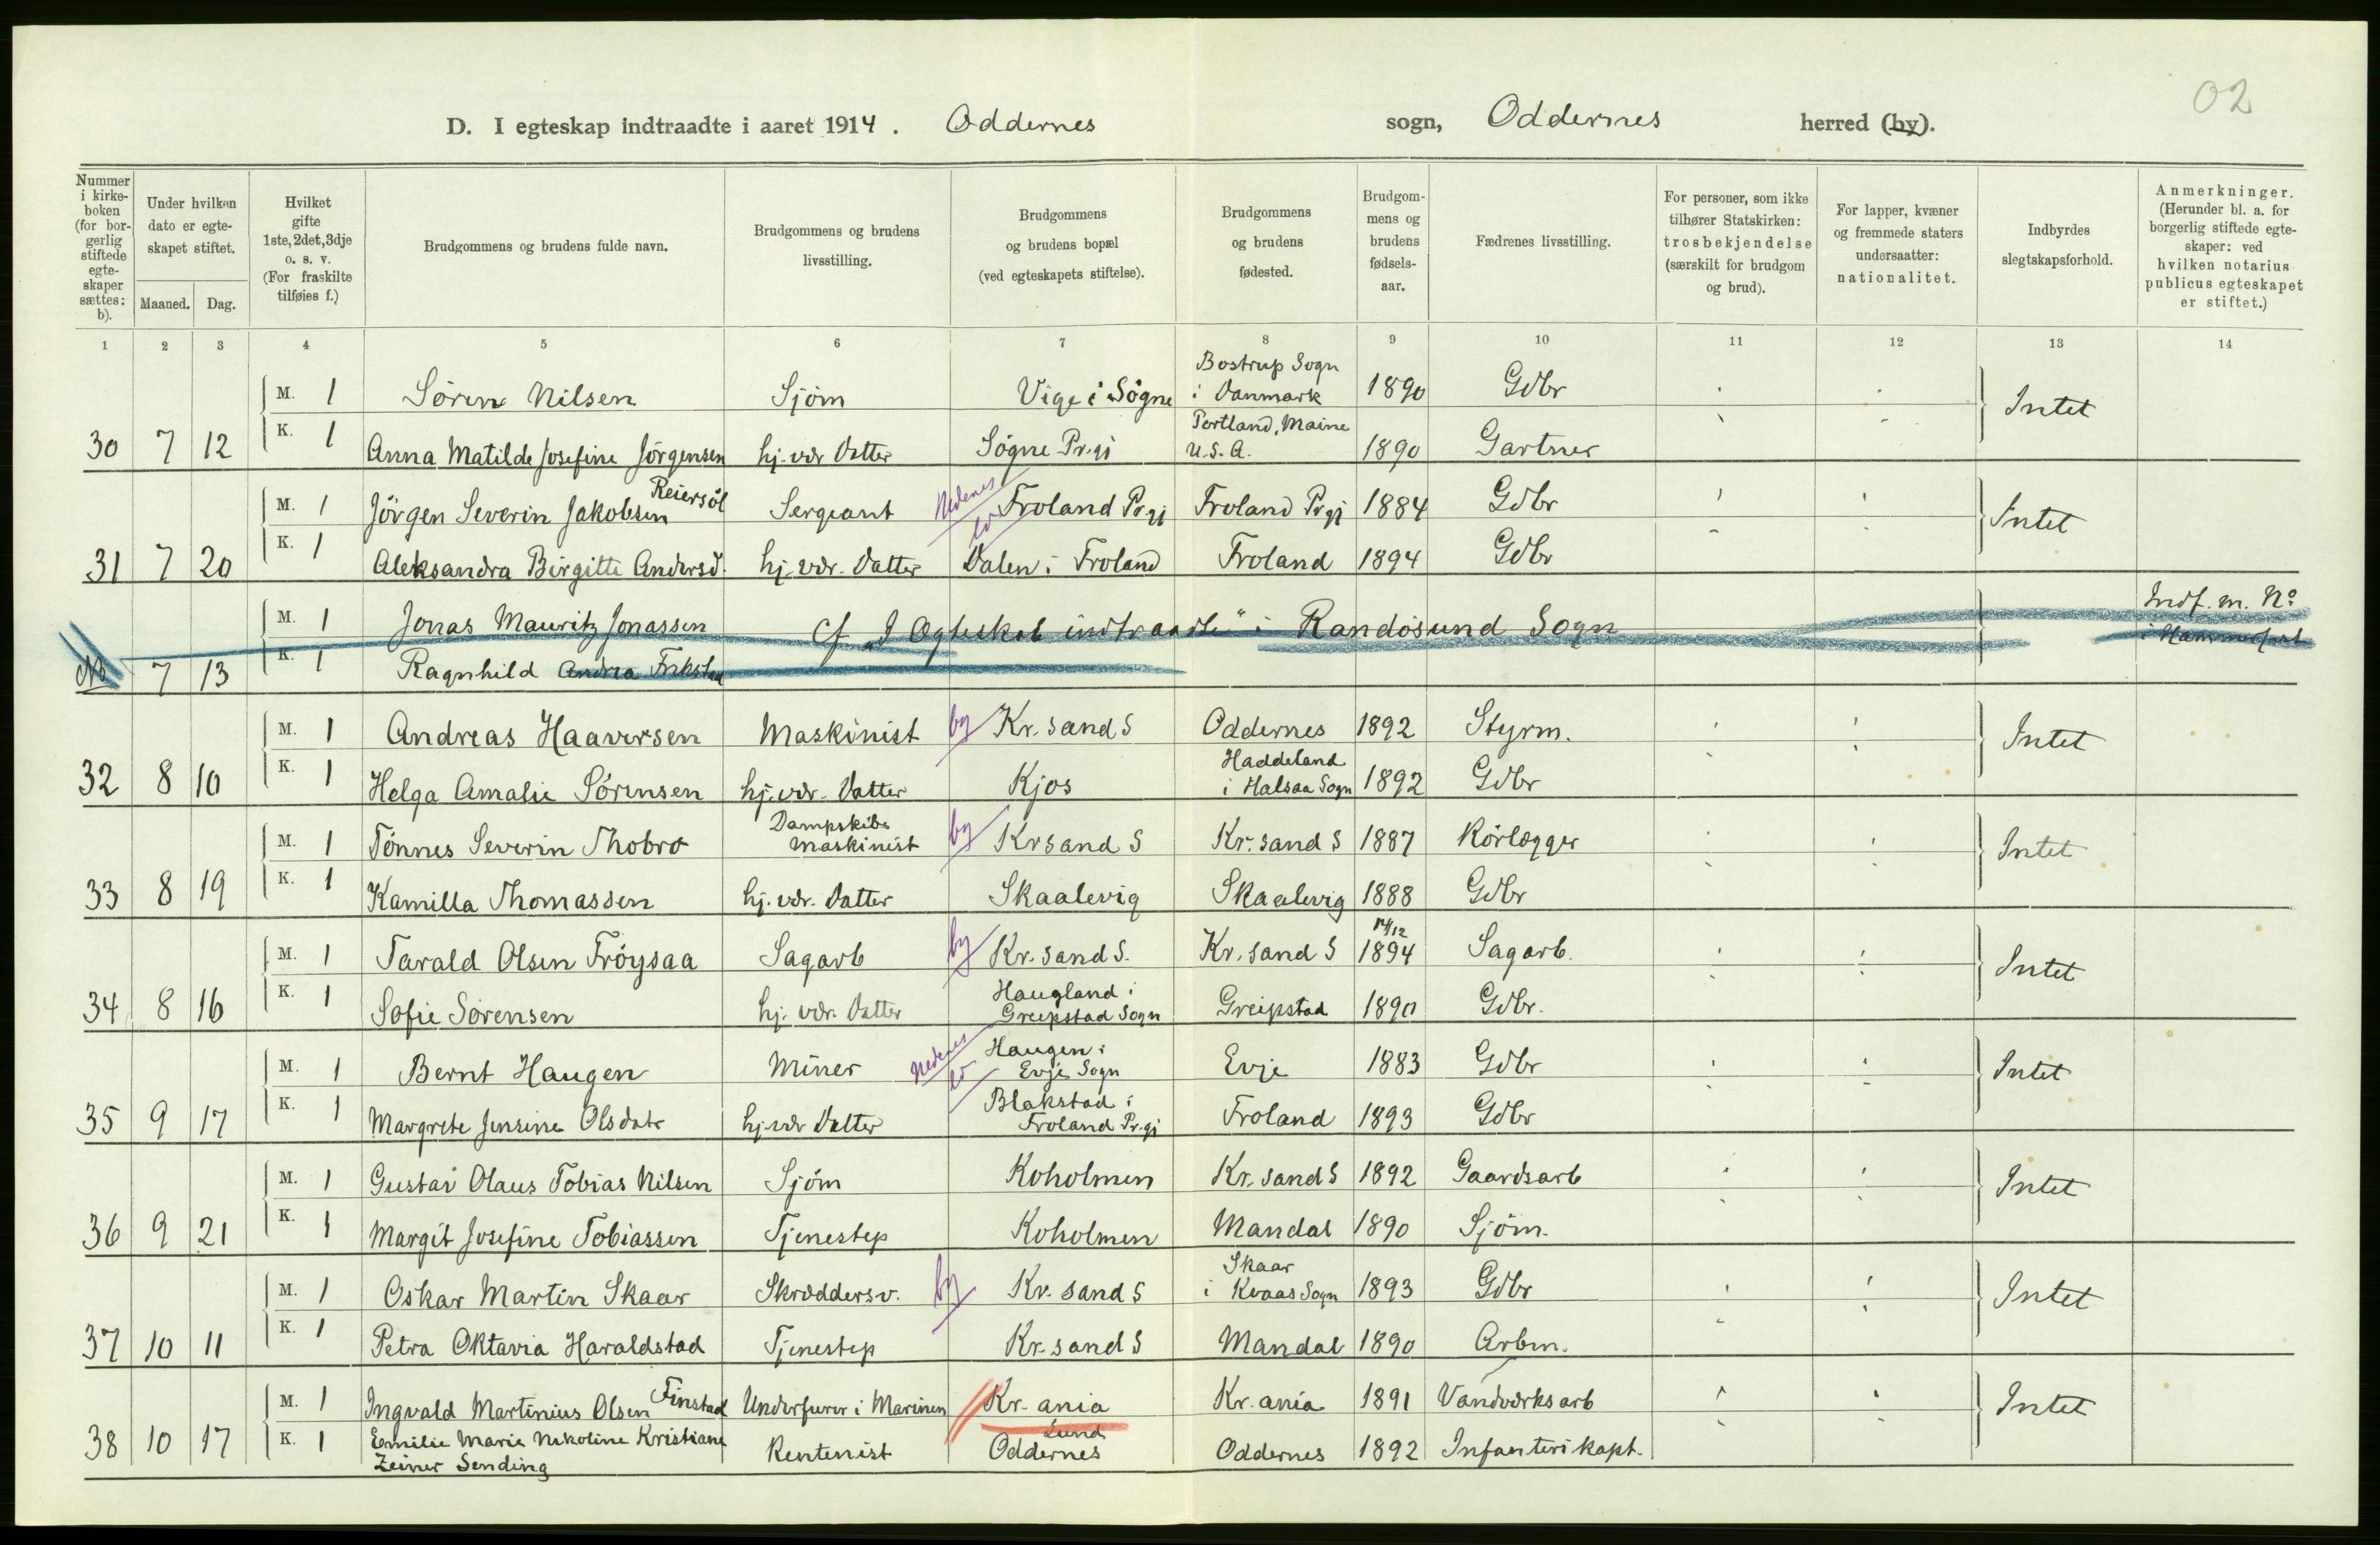 02
D. I egteskap indtraadte i aaret 1914. Oddernes sogn, Oddernes herred (by).
Nummer i kirkeboken (for borgerlig stiftede egteskaper sættes: b).
Under hvilken dato er egteskapet stiftet.
Maaned. Dag.
Hvilket gifte 1ste, 2det, 3dje o. s. v. (For fraskilte tilføies f.)
Brudgommens og brudens fulde navn.
Brudgommens og brudens livsstilling.
Brudgommens og brudens bopæl (ved egteskapets stiftelse).
Brudgommens og brudens fødested.
Brudgommens og brudens fødselsaar.
Fædrenes livsstilling.
For personer, som ikke tilhører Statskirken: trosbekjendelse (særskilt for brudgom og brud).
For lapper, kvæner og fremmede staters undersaatter: nationalitet.
Indbyrdes slegtskapsforhold.
Anmerkninger. (Herunder bl. a. for borgerlig stiftede egteskaper: ved hvilken notarius publicus egteskapet er stiftet.)
1 2 3 4 5 6 7 8 9 10 11 12 13 14
M. 1 Sören Nilsen Sjöm Vige i Sögne Bostrup Sogn i Danmark 1890 Gdbr Intet
30 7 12 K. 1 Anna Matilde Josefine Jörgensen hj. vær Datter Sögne Pr.gj Portland, Maine U.S.A. 1890 Gartner
M. 1 Jörgen Severin Jakobsen Reiersöl Sergeant Nedenes Froland Pr.gj Froland Pr.gj 1884 Gdbr Intet
31 7 20 K. 1 Aleksandra Birgitte Andersd. hj. vær. Datter Dalen i Froland Froland 1894 Gdbr
M. 1 Jonas Mauritz Jonassen Cf. "I Ægteskab indtraadte" i Randösund Sogn Indf. m. No
7 13 K. 1 Ragnhild Andrea i Hammerfest
M. 1 Andreas Haaversen Maskinist by Kr.sand S Oddernes 1892 Styrm. Intet
32 8 10 K. 1 Helga Amalie Sörensen hj. vær. Datter Kjos Haddeland i Halsaa Sogn 1892 Gdbr
M. 1 Tönnes Severin Thobro Dampskibsmaskinist by Krsand S Kr.sand S 1887 Rörlægger Intet
33 8 19 K. 1 Kamilla Thomassen hj. vær. Datter Skaalevig Skaalevig 1888 Gdbr
M. 1 Tarald Olsen Fröysaa Sagarb by Kr.sand S. Kr.sand S 14/12 1894 Sagarb. Intet
34 8 16 K. 1 Sofie Sörensen hj. vær. Datter Haugland i Greipstad Sogn Greipstad 1890 Gdbr.
M. 1 Bernt Haugen Miner Nedenes Haugen i Evje Sogn Evje 1883 Gdbr Intet
35 9 17 K. 1 Margrete Jensine Olsdatr hj. vær Datter Blakstad i Froland Pr.gj Froland 1893 Gdbr
M. 1 Gustav Olaus Tobias Nilsen Sjöm Koholmen Kr.sand S 1892 Gaardsarb Intet
36 9 21 K. 1 Margit Josefine Tobiassen Tjenestep Koholmen Mandal 1890 Sjöm.
M. 1 Oskar Martin Skaar Skræddersv. by Kr.sand S Skaar i Kvaas Sogn 1893 Gdbr Intet
37 10 11 K. 1 Petra Oktavia Haraldstad Tjenestep Kr.sand S Mandal 1890 Arbm.
M. 1 Ingvald Martinius Olsen Finstad Underfurer i Marinen Kr.ania Kr.ania 1891 Vandværksarb Intet
38 10 17 K. 1 Emilie Marie Nekoline Kristiane Zeiner Sending Rentenist Lund Oddernes Oddernes 1892 Infanterikapt.